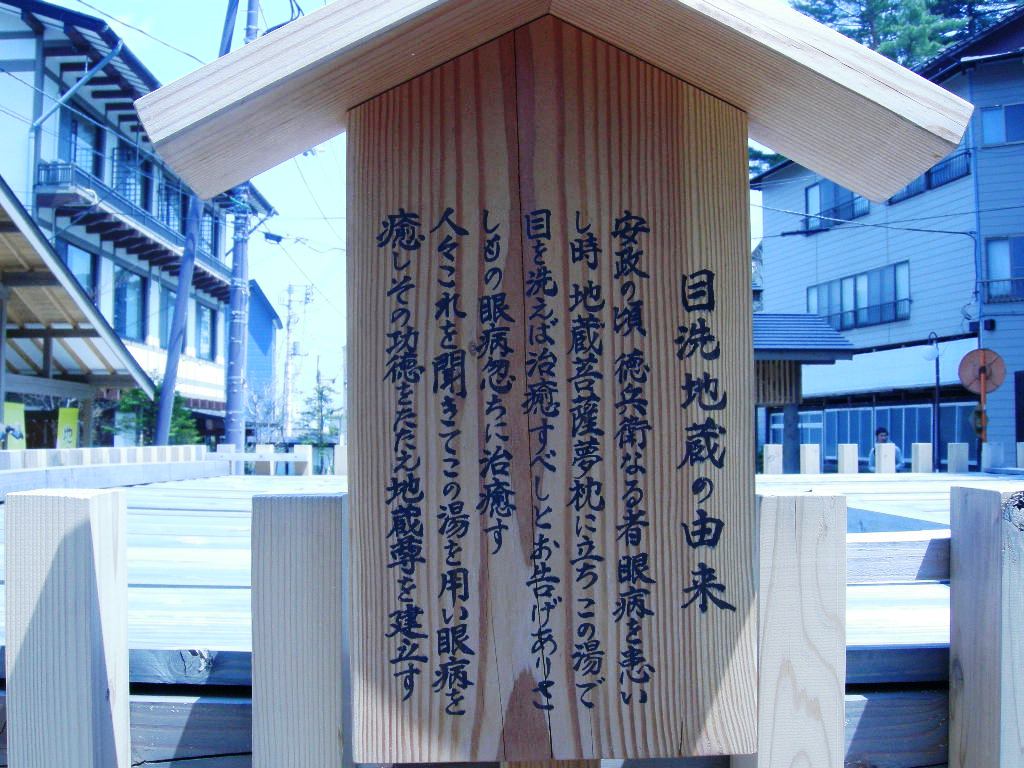 目洗地蔵の由来
安政の頃 徳兵衛なる者 眼病を患い
し時 地蔵菩薩夢枕に立ち この湯で
目を洗えば治癒すべしとお告げあり さ
しもの眼病忽ちに治癒す
人々これを聞きてこの湯を用い眼病を
癒しその功徳をたたえ地蔵尊を建立す
地